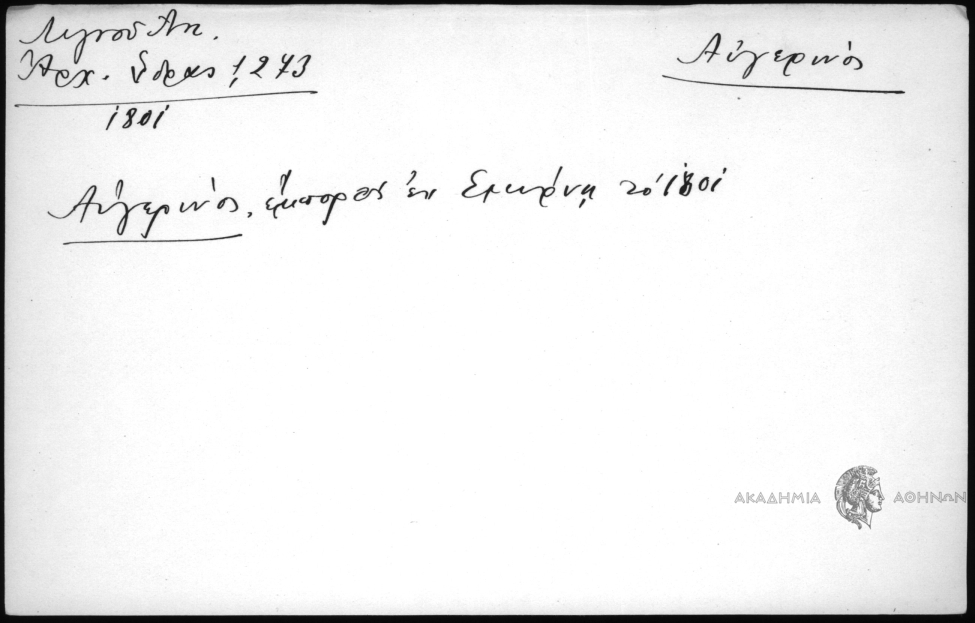 Λιγνοῦ Ἀντ.
Ἀρχ. Ὕδρας 1,273
1801
Αὐγερινὸς
Αὐγερινὸς, ἔμπορος ἐν Σμύρνῃ τὸ 1801
ΑΚΑΔΗΜΙΑ ΑΘΗΝΩΝ